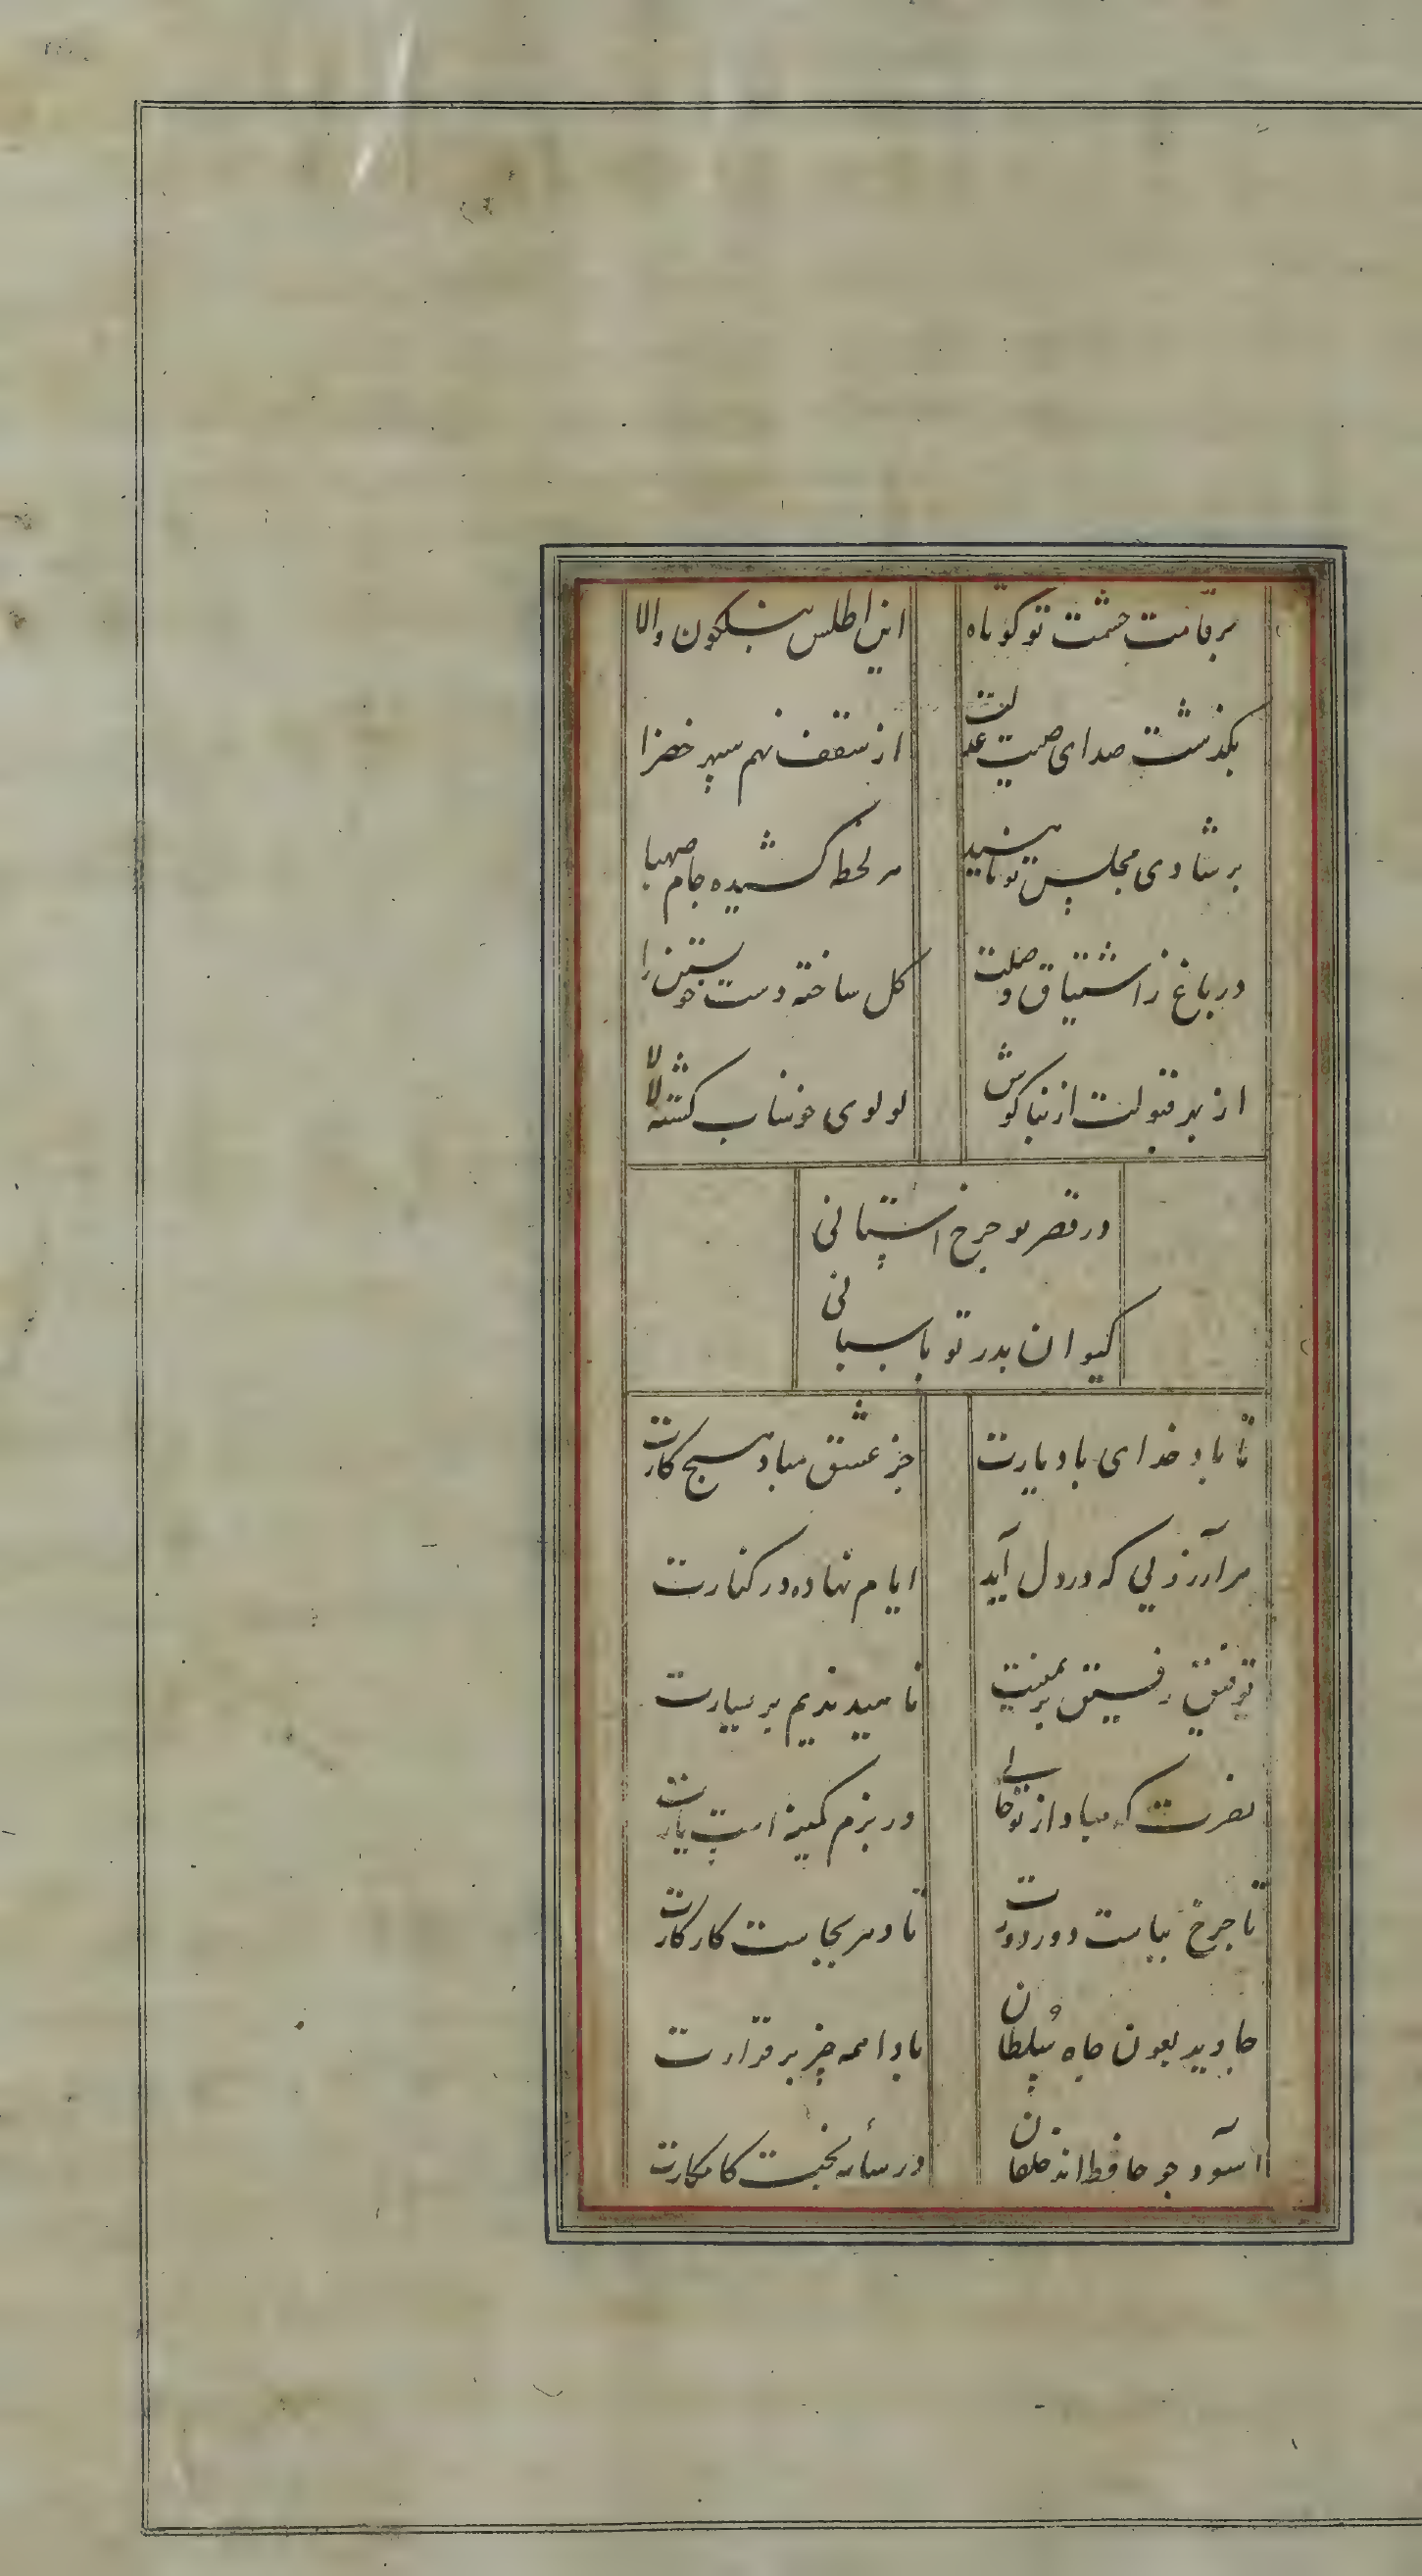 بر قامت حشمت تو کوتاه این اطلس نیلکون والا
بکذشت صدای صیت عدلت از سقف نهم سپهر خضرا
بر شادی مجلس تو ناهید هر لحظه کشیده جام صهبا
در باغ ز اشتیاق وصلت کل ساخته دست خویشتن را
از بهر قبولت از بناکوش لولوی خوشاب کشته لالا
در قصر تو چرخ آستانی
کیوان بدر تو پاسبانی
تا باد خدای باد یارت جز عشق مباد هیچ کارت
هر آرزویی که در دل آید ایام نهاده در کنارت
توفیق رفیق بر یمینت ناهید ندیم بر یسارت
نصرت که مباد از تو خالی در بزم کمینه است یارت
تا چرخ بپاست دور دورت تا دهر بجاست کار کارت
جاوید بعون جاه سلطان بادا همه چیز برقرارت
آسود چو حافظ اند خلقان در سایه بخت کامکارت